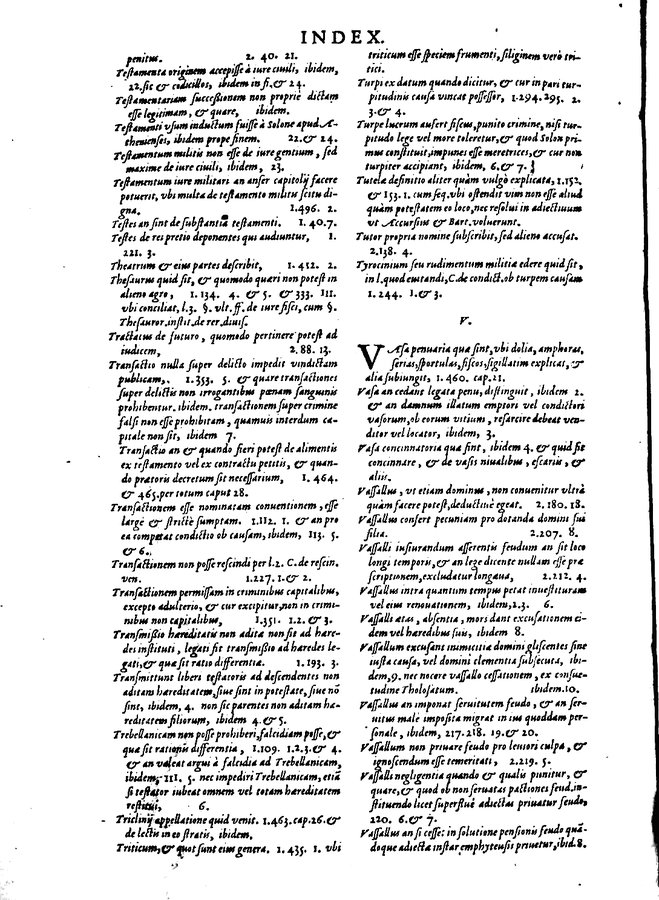 INDEX.
penitus. 2. 40. 21.
Testamenta originem accepisse à iure ciuili, ibidem,
22. sic & codicillos, ibidem in fi, & 24.
Testamentariam successionem non propriè dictam
esse legitimam, & quare, ibidem.
Testamenti vsum inductum fuisse à Solone apud A-
thenienses, ibidem prope finem. 22. & 24.
Testamentum militis non esse de iure gentium, sed
maxime de iure ciuili, ibidem, 23.
Testamentum iure militari an anser capitolij facere
potuerit, vbi multa de testamento militis scitu di-
gna. 1.496. 2.
Testes an sint de substantia testamenti. 1. 40.7.
Testes de rei pretio deponentes qui audiuntur, 1.
221. 3.
Theatrum & eius partes describit, 1. 452. 2.
Thesaurus quid sit, & quomodo quari non potest in
alieno agro, 1. 134. 4. & 5. & 333. III.
vbi conciliat, l.3. §. vlt. ff. de iure fisci, cum §.
Thesauros. instit. de rer. diuis.
Tractatus de futuro, quomodo pertinere potest ad
iudicem, 2.88. 13.
Transactio nulla super delicto impedit vindictam
publicam, 1.353. 5. & quare transactiones
super delictis non irrogantibus pœnam sanguinis
prohibentur. ibidem. transactionem super crimine
falsi non esse prohibitam, quamuis interdum ca-
pitale non sit, ibidem 7.
Transactio an & quando fieri potest de alimentis
ex testamento vel ex contractu petitis, & quan-
do prætoris decretum sit necessarium, 1. 464.
& 465. per totum caput 28.
Transactionem esse nominatam conuentionem, esse
largè & strictè sumptam. 1.112. 1. & an pro
ea competat condictio ob causam, ibidem, 113. 5.
& 6.
Transactionem non posse rescindi per l.2. C. de rescin.
ven. 1.227. 1. & 2.
Transactionem permissam in criminibus capitalibus,
excepto adulterio, & cur excipitur, non in crimi-
nibus non capitalibus, 1.351. 1.2. & 3.
Transmissio hæreditatis non adita non sit ad hære-
des instituti, legati sit transmissio ad hæredes le-
gati, & qua sit ratio differentiæ. 1. 193. 3.
Transmittunt liberi testatoris ad descendentes non
aditam hæreditatem, siue sint in potestate, siue nō
sint, ibidem, 4. non sic parentes non aditam hæ-
reditatem filiorum, ibidem 4. & 5.
Trebellianicam non posse prohiberi, falcidiam posse, &
quæ sit rationis differentia, 1.109. 1.2.3. & 4.
& an valeat argui à falcidia ad Trebellianicam,
ibidem, 111. 5. nec impediri Trebellianicam, etiā
si testator iubeat omnem vel totam hæreditatem
restitui, 6.
Triclinij appellatione quid venit. 1.463. cap. 26. &
de lectis in eo stratis, ibidem.
Triticum, & quot sunt eius genera. 1. 435. 1. vbi
triticum esse speciem frumenti, siliginem verò tri-
tici.
Turpi ex datum quando dicitur, & cur in pari tur-
pitudinis causa vincat possessor, 1.294.295. 2.
3. & 4.
Turpe lucrum aufert fiscus, punito crimine, nisi tur-
pitudo lege vel more toleretur, & quod Solon pri-
mus constituit, impunes esse meretrices, & cur non
turpiter accipiant, ibidem, 6. & 7.
Tutelæ definitio aliter quàm vulgò explicata, 1.152.
& 153. 1. cum seq. vbi ostendit vim non esse aliud
quàm potestatem eo loco, nec resolui in adiectiuum
vt Accursius & Bart. voluerunt.
Tutor propria nomine subscribit, sed alieno accusat.
2.138. 4.
Tyrocinium seu rudimentum militiæ edere quid sit,
in l. quod eutandi, C. de condict. ob turpem causam
1. 244. 1. & 3.
V.
VAsa penuaria qua sint, vbi dolia, amphoras,
serias, sportulas, fiscos, sigillatim explicat, &
alia subiungit, 1. 460. cap. 21.
Vasa an cedant legata penu, distinguit, ibidem 2.
& an damnum illatum emptori vel conditori
vasorum, ob eorum vitium, resarcire debeat ven-
ditor vel locator, ibidem, 3.
Vasa concinnatoria qua sint, ibidem 4. & quid sit
concinnare, & de vasis niualibus, escariis, &
aliis.
Vassallus, vt etiam dominus, non conuenitur vltrà
quàm facere potest, deductine egeat. 2. 180. 18.
Vassallus confert pecuniam pro dotanda domini sui
filia. 2.207. 8.
Vassalli iusiurandum asserentis feudum an sit loco
longi temporis, & an lege dicente nullam esse præ
scriptionem, excludatur longæua, 2.212. 4.
Vassallus intra quantum tempus petat inuestituram
vel eius renouationem, ibidem, 2.3. 6.
Vassalli ætas, absentia, mors dant excusationem ei-
dem vel hæredibus suis, ibidem 8.
Vassallum excusant inimicitiæ domini gliscentes sine
iusta causa, vel domini clementia subsecuta, ibi-
dem, 9. nec nocere vassallo cessationem, ex consue-
tudine Tholosatum. ibidem. 10.
Vassallus an imponat seruitutem feudo, & an ser-
uitus male imposita migrat in ius quoddam per-
sonale, ibidem, 217.218. 19. & 20.
Vassallum non priuare feudo pro leuiori culpa, &
ignoscendum esse temeritati, 2.219. 5.
Vassalli negligentia quando & qualis punitur, &
quare, & quod ob non seruatas pactiones feud. in-
stituendo licet superfluè adiectas priuatur feudo,
220. 6. & 7.
Vassallus an si cesset in solutione pensionis feudo quā-
doque adiecta instar emphyteusis priuetur, ibid. 8.